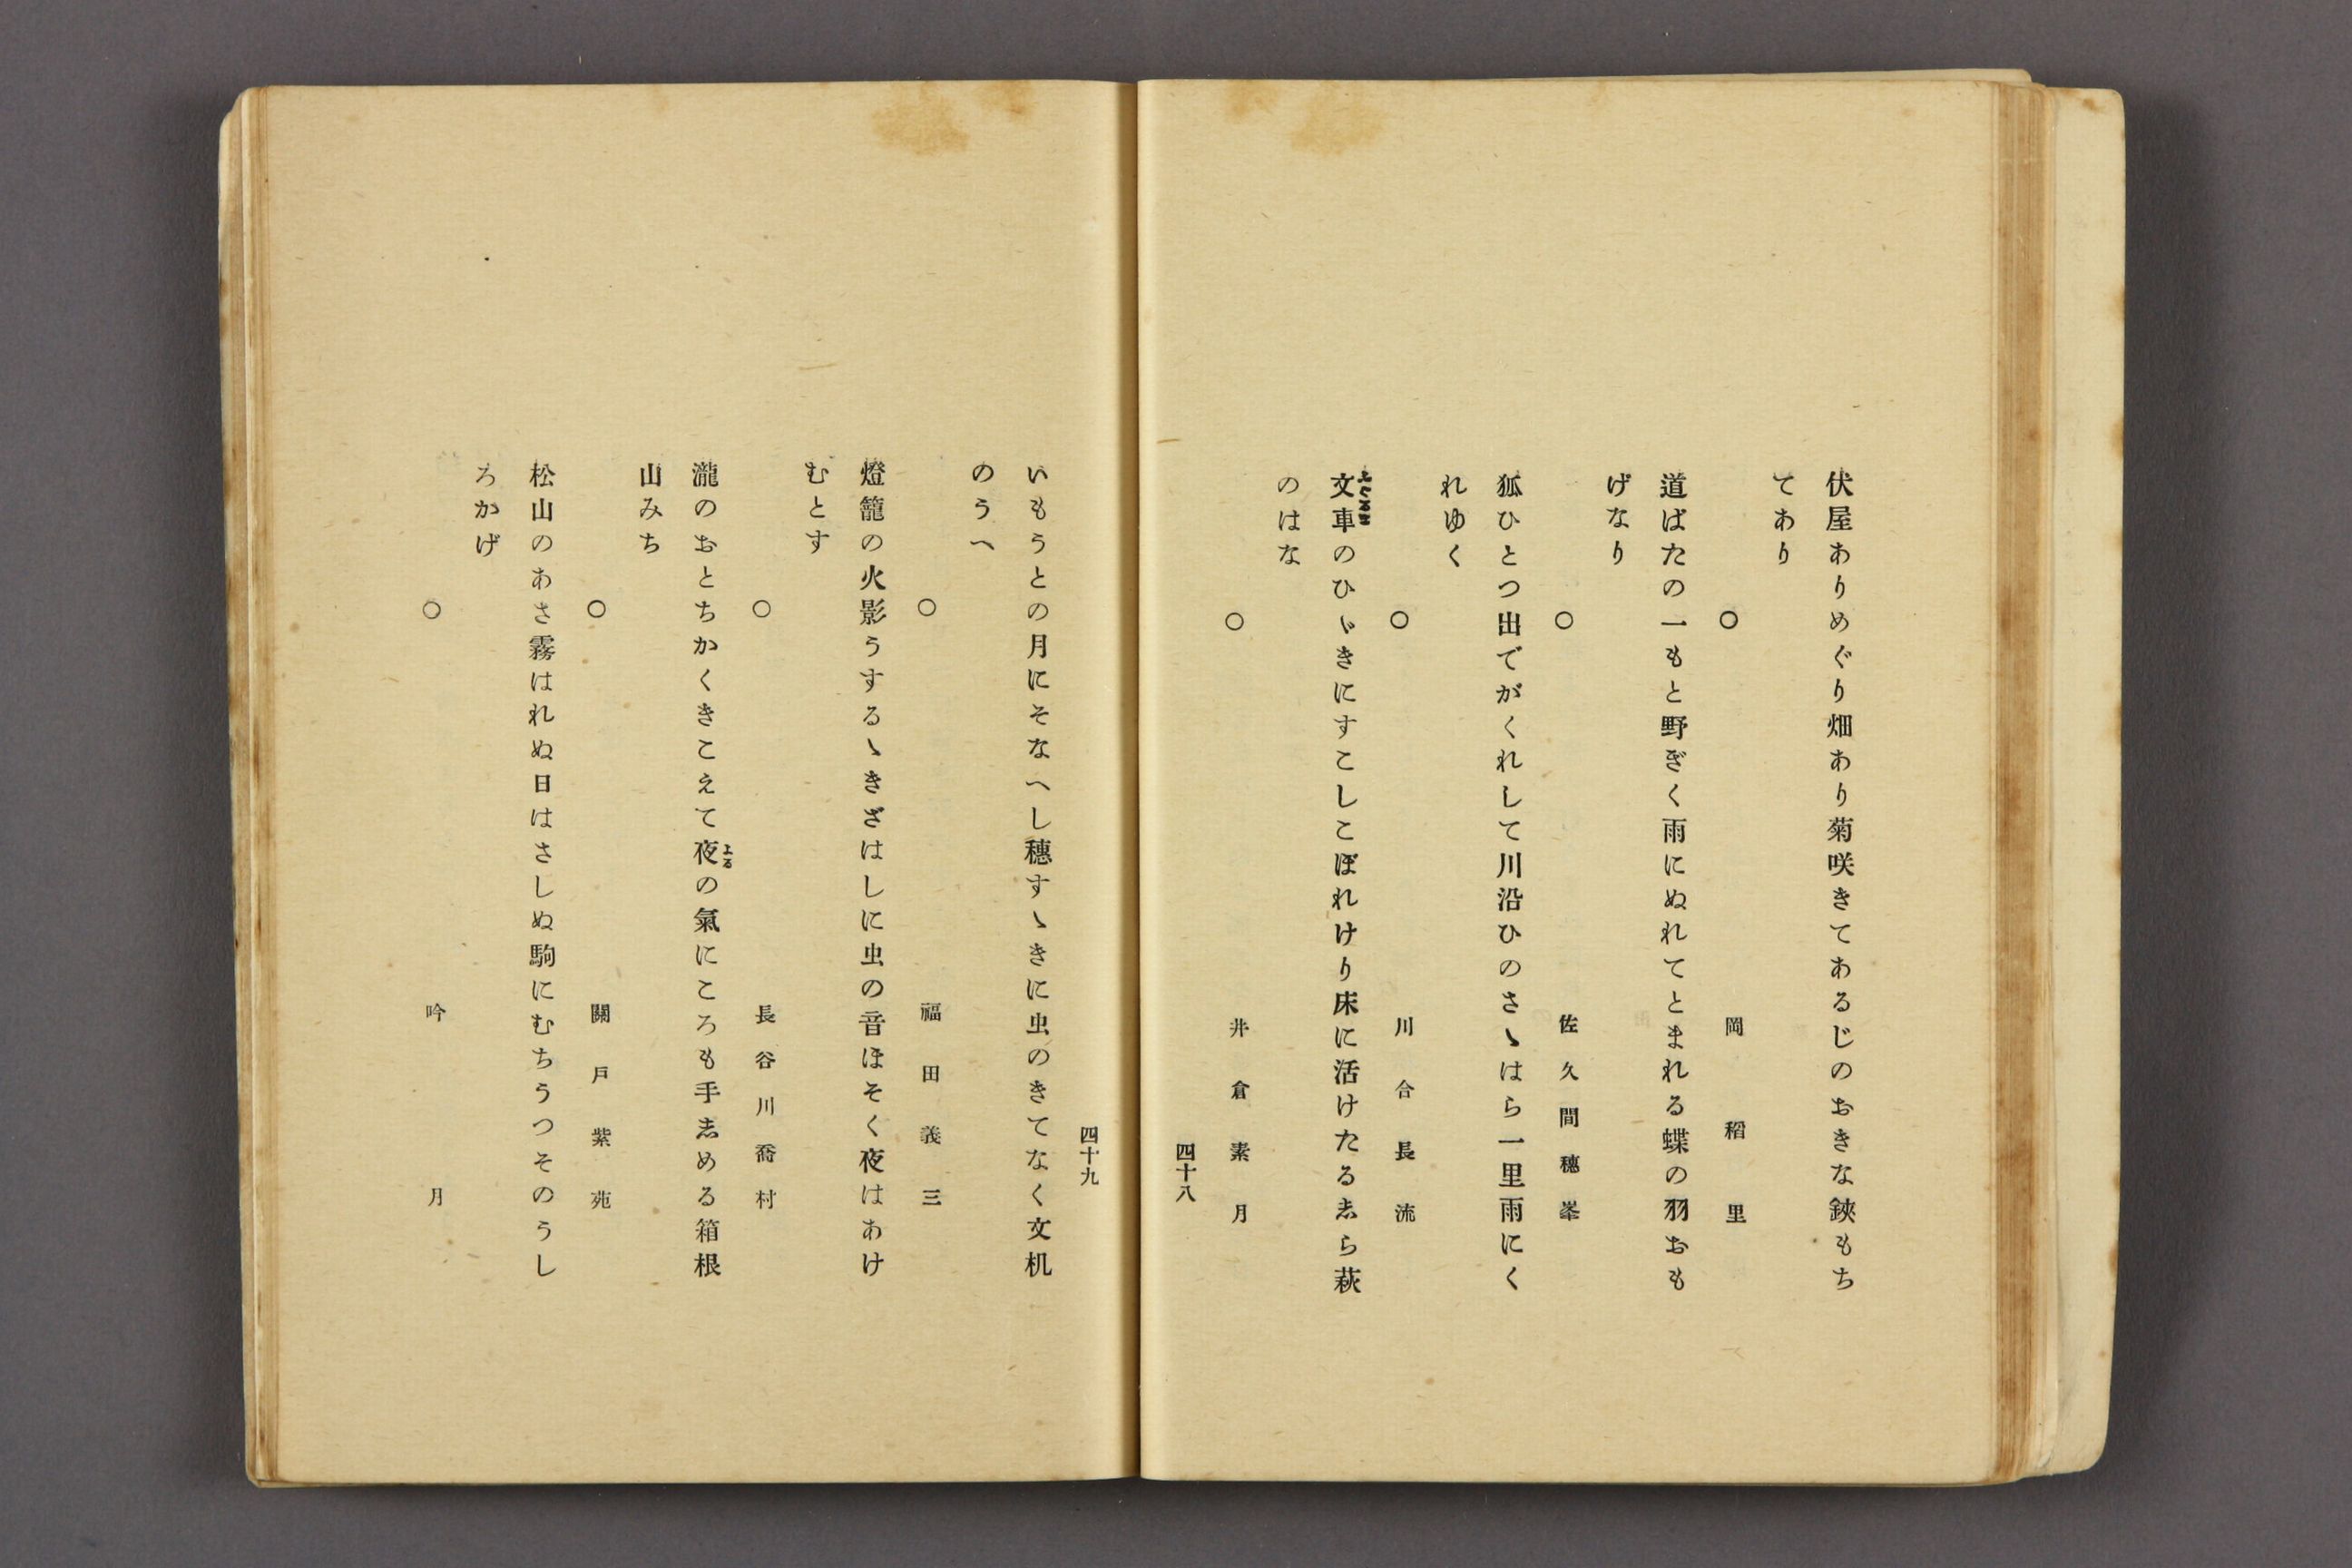 伏屋ありめぐり畑あり菊咲きてあるじのおきな鋏もち
てあり
○
岡稻里
道ばたの一もと野ぎく雨にぬれてとまれる蝶の羽おも
げなり
○
佐久間穗峯
狐ひとつ出でがくれして川沿ひのさゝはら一里雨にく
れゆく
○
川合長流
文車のひゞきにすこしこぼれけり床に活けたる志ら萩
のはな
○
井倉素月
四十八
四十九
いもうとの月にそなへし穗すゝきに虫のきてなく文机
のうへ
○
福田義三
燈籠の火影うするゝきざはしに虫の音ほそく夜はあけ
むとす
○
長谷川喬村
瀧のおとちかくきこえて夜の氣にころも手志める箱根
よる
山みち
○
關戸紫苑
松山のあさ霧はれぬ日はさしぬ駒にむちうつそのうし
ろかげ
○
吟月